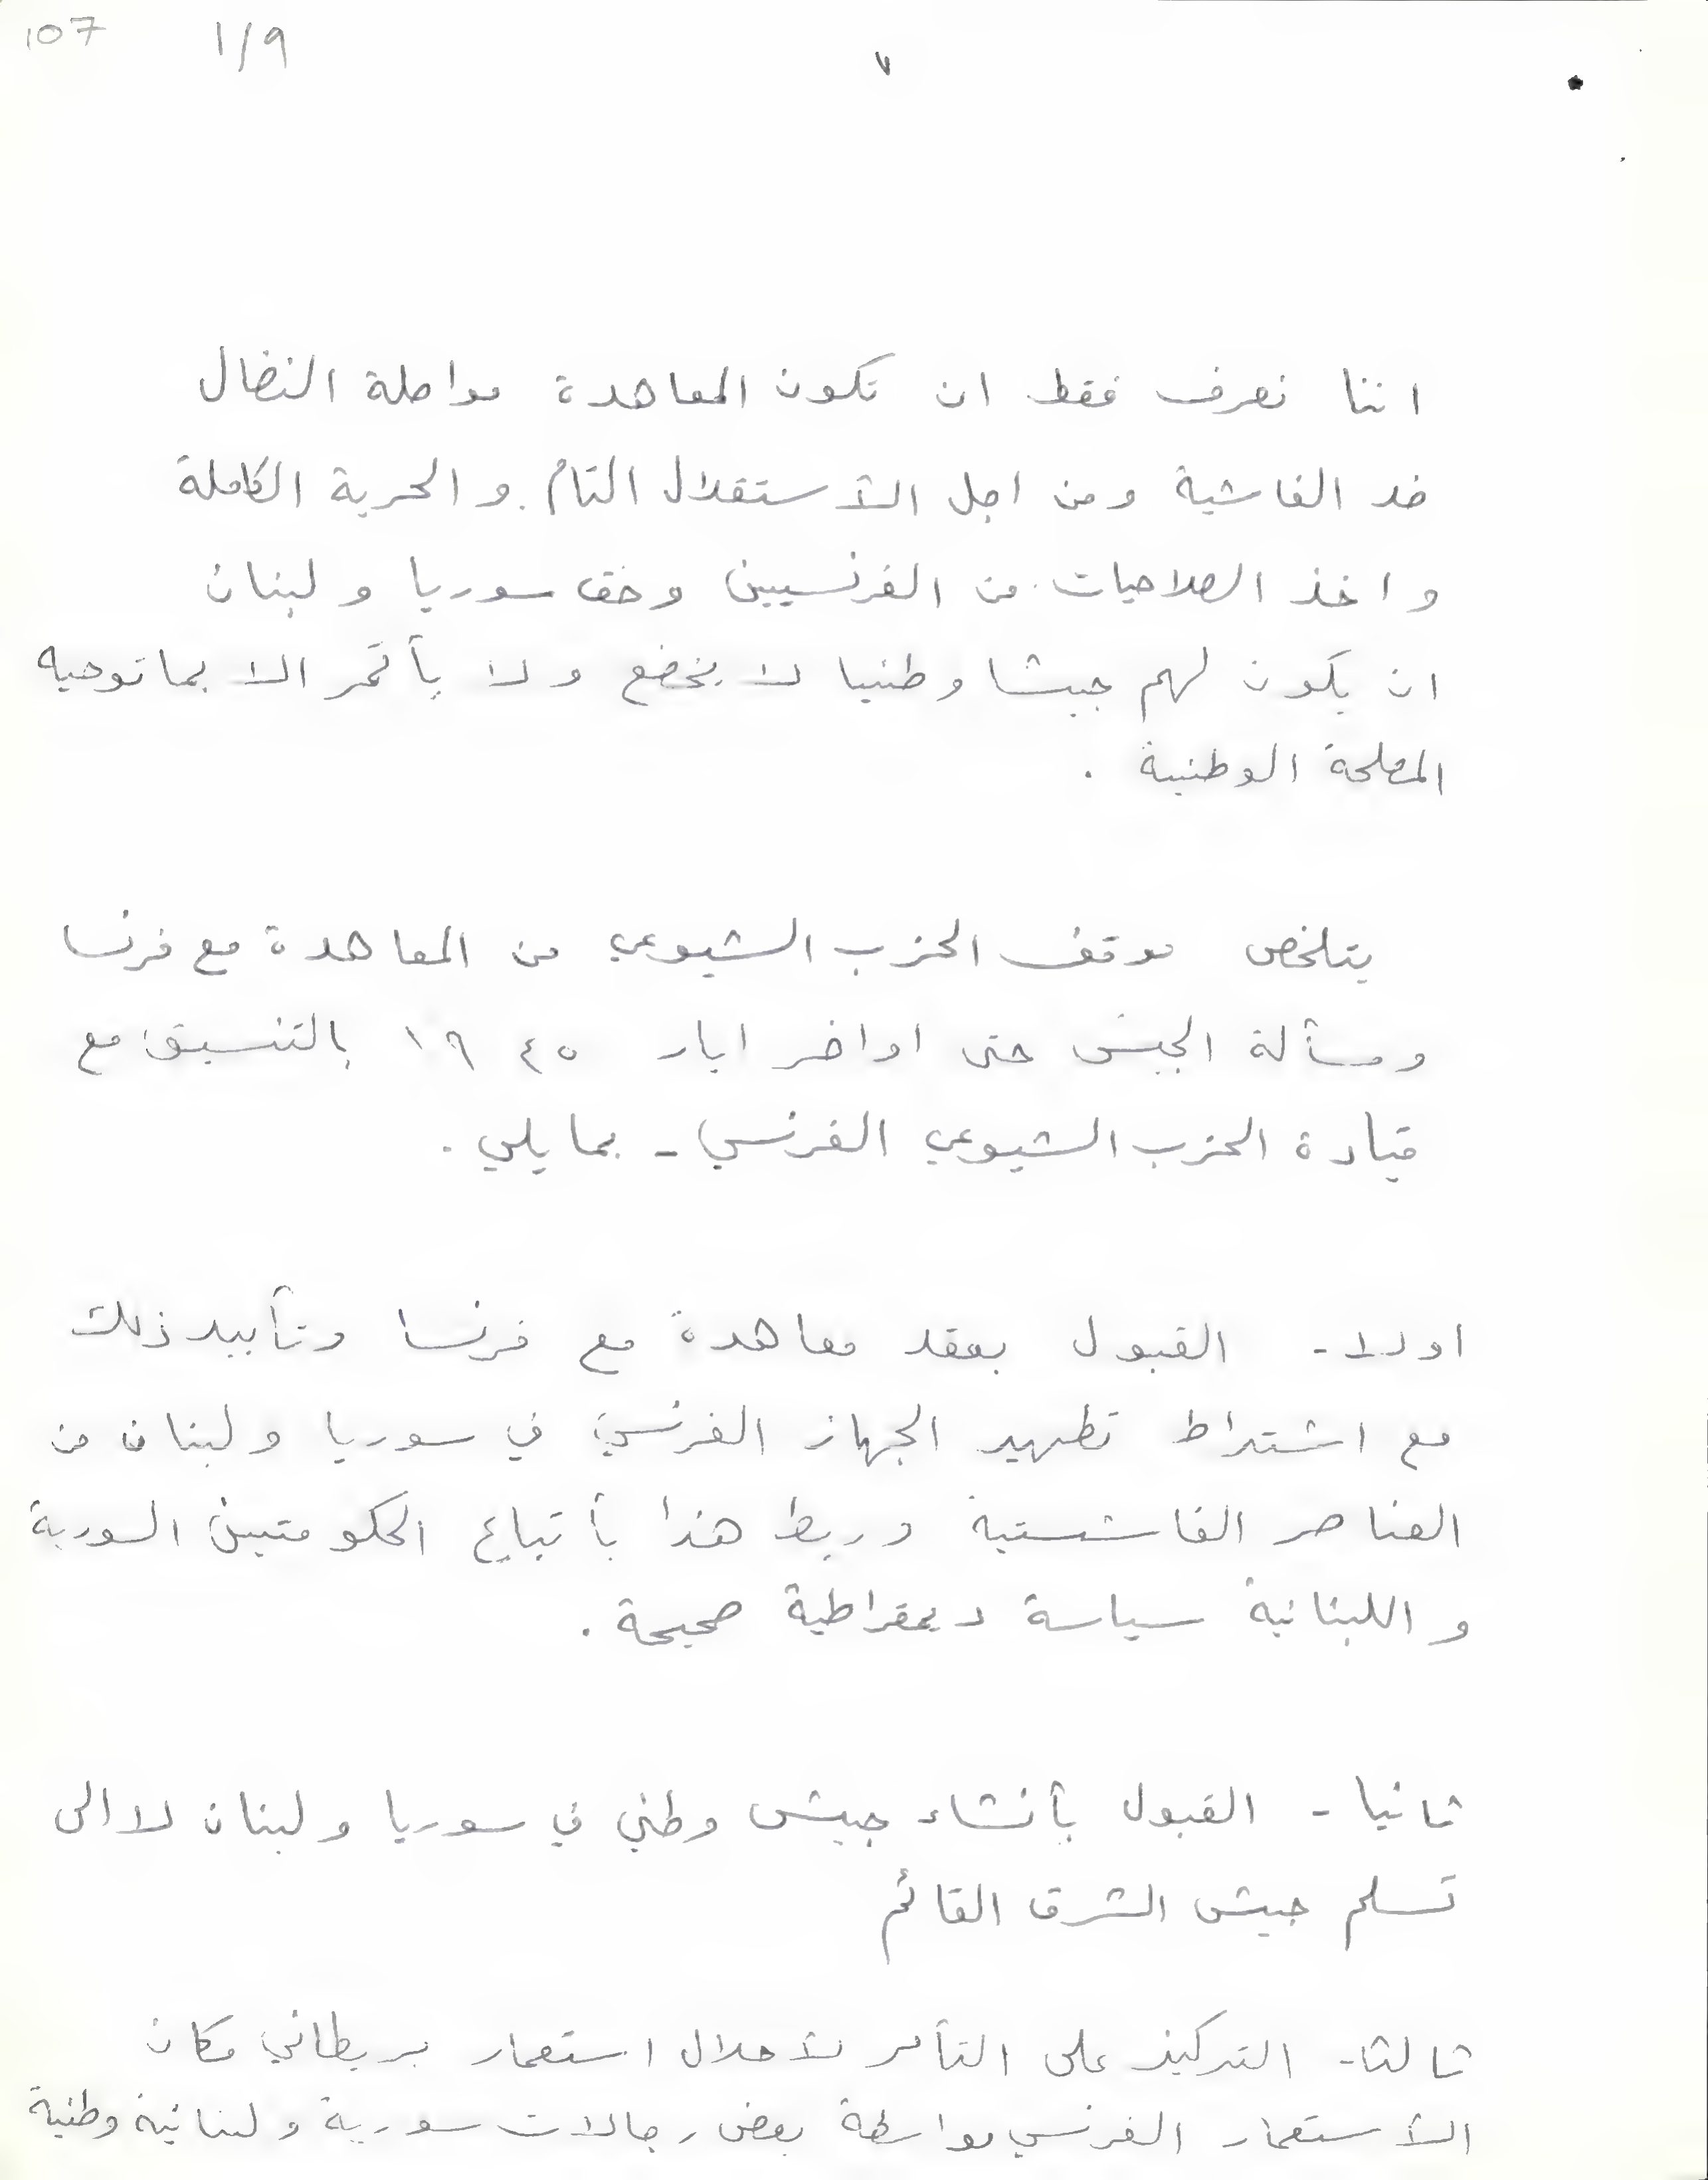 107 1/9
٧
اننا نعرف فقط ان تكون المعاهدة مواصلة النضال
ضد الفاشية ومن اجل الأستقلال التام . والحرية الكاملة
واخذ الصلاحيات من الفرنسيين وحق سوريا ولبنان
ان يكون لهم جيشا وطنيا لا يخضع ولا يأتمر الا بما توحيه
المصلحة الوطنية .
يتلخص موقف الحزب الشيوعي من المعاهدة مع فرنسا
ومسألة الجيش حتى اواخر ايار ١٩٤٥ بالتنسيق مع
قيادة الحزب الشيوعي الفرنسي - بما يلي .
اولا - القبول بعقد معاهدة مع فرنسا وتأييد ذلك
مع اشتراط تطهير الجهاز الفرنسي في سوريا ولبنان من
العناصر الفاشستية وربط هذا بأتباع الحكومتين السورية
واللبنانية سياسة ديمقراطية صحيحة .
ثانيا - القبول بأنشاء جيش وطني في سوريا ولبنان لا الى
تسلم جيش الشرق القائم
ثالثا - التركيز على التأمر لأحلال استعمار بريطاني مكان
الأستعمار الفرنسي بواسطة بعض رجالات سورية ولبنانية وطنية